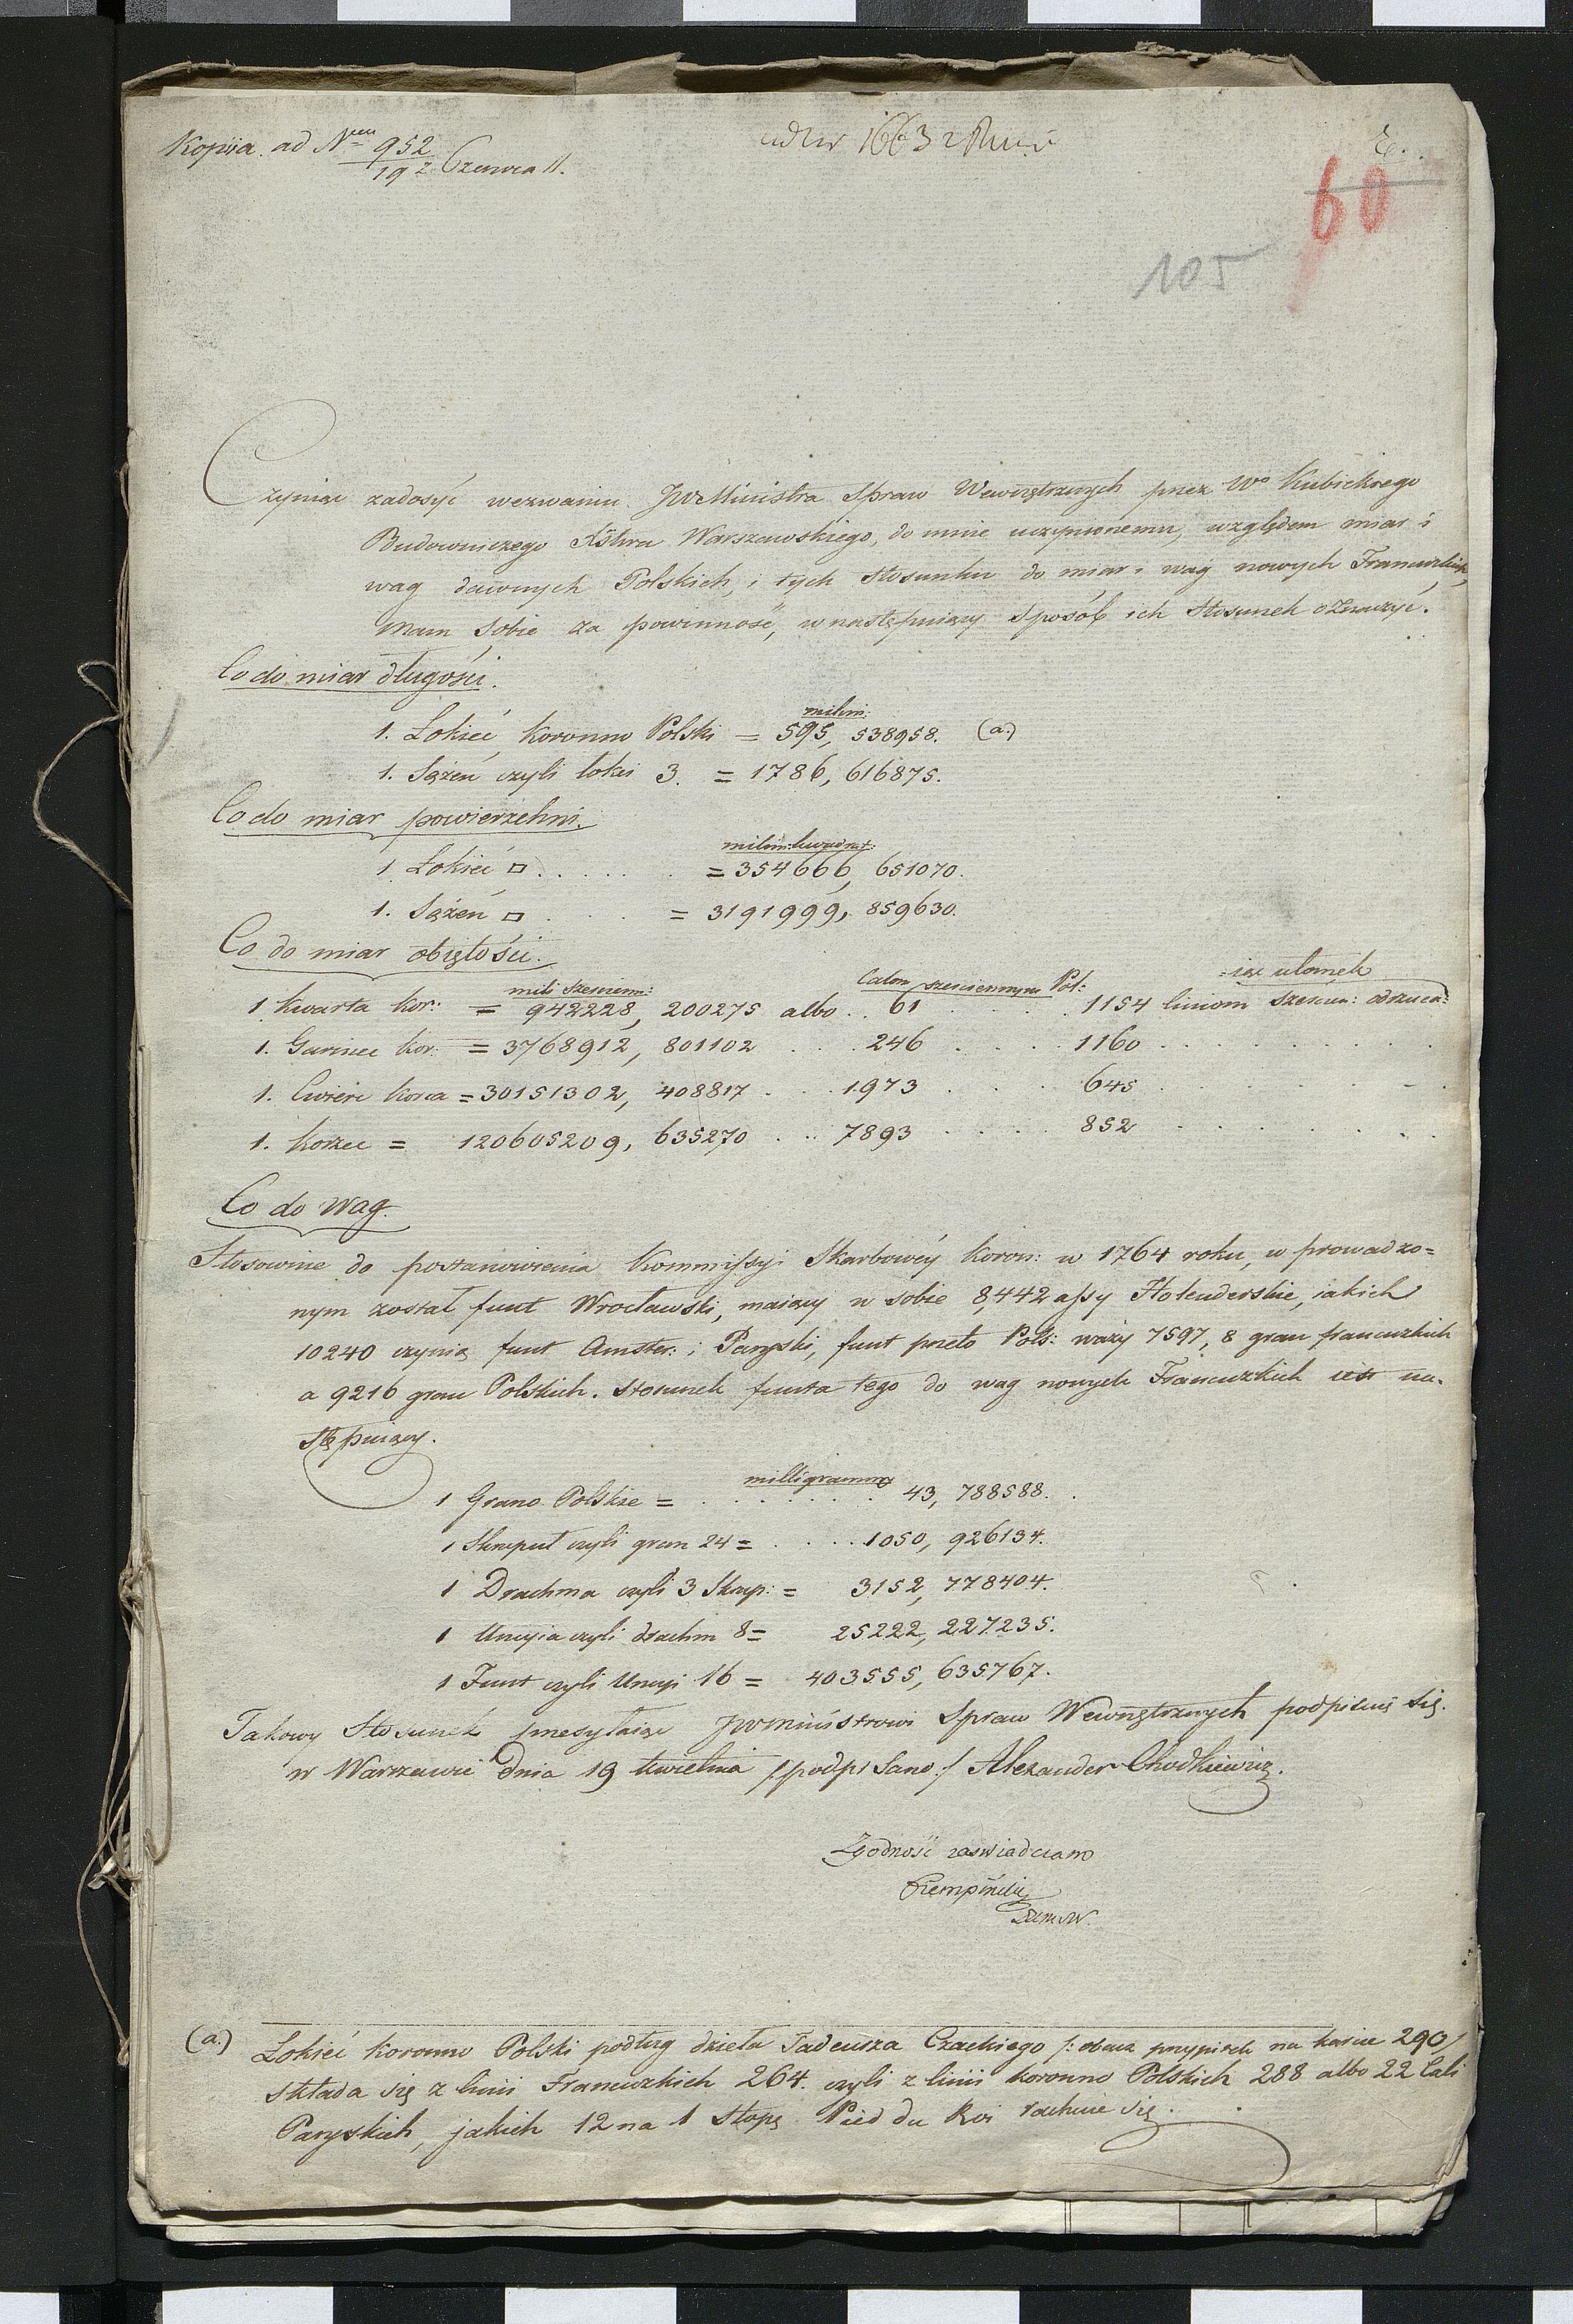 Kopiia ad N 952
19 z Czerwca 11.
1663
E.
60
105
Czyniąc zadosyć wezwaniu JWMinistra Spraw Wewnętrznych przez Wo Kubickiego
Budowniczego Xstwa Warszawskiego, do mnie uczynionemu, względem miar i
wag dawnych Polskich, i tych stosunku do miar i wag nowych Francuzkich,
mam sobie za powinność, w następuiący sposób ich stosunek oznaczyć.
Co do miar długości.
milim:
1. Łokieć koronno Polski = 595, 538958. (a.)
1. Sążeń czyli łokci 3. = 1786, 616875.
Co do miar powierzchni.
milim: kwadrat:
1 Łokieć □ . . . . . = 354666, 651070.
1. Sążeń □ . . . . = 3191999, 859630.
Co do miar obiętości.
mili sześcienn: Calom sześciennym Pol: iąc ułomek
1 Kwarta kor: = 942228, 200275 albo . . 61 . . . . 1154 liniom sześcien: odrzuca=
1. Garniec kor: = 3768912, 801102 . . . 246 . . . . 1160 . . . . . . .
1. Ćwierć korca = 30151302, 408817 . . . 1973 . . . . 645 . . . . . . .
1. Korzec = 120605209, 635270 . . . 7893 . . . . 852 . . . . . . .
Co do wag.
Stosownie do postanowienia Kommissyi Skarbowéy Koron: w 1764 roku, w prowadzo=
nym został funt Wrocławski, maiący w sobie 8,442 assy Holenderskie, iakich
10240 czynią funt Amster: i Paryski, funt przeto Pols: waży 7597, 8 gran francuzkich
a 9216 gran Polskich. Stosunek funta tego do wag nowych Francuzkich iest na=
stępuiący.
milligrammy
1 Grano Polskie = . . . . . . . 43, 788588.
1 Skrupuł czyli gran 24 = . . . . 1050, 926134.
1 Drachma czyli 3 Skrup: = 3152, 778404.
1 Uncyia czyli drachm 8 = 25222, 227235.
1 Funt czyli Uncyi 16 = 403555, 635767.
Takowy Stosunek przesyłaiąc JWMinistrowi Spraw Wewnętrznych podpisuię się.
w Warzawie Dnia 19 kwietnia /:podpisano:/ Alexander Chodkiewicz.
Zgodność zaswiadczam
(a.) Łokieć koronno Polski podług dzieła Tadeusza Czackiego /: obacz przypisek na karcie 290/
składa się z linii Francuzkich 264. czyli z linii koronno Polskich 288 albo 22 Cali
Paryskich, jakich 12 na 1 stopę Pied du Roi rachuie się.